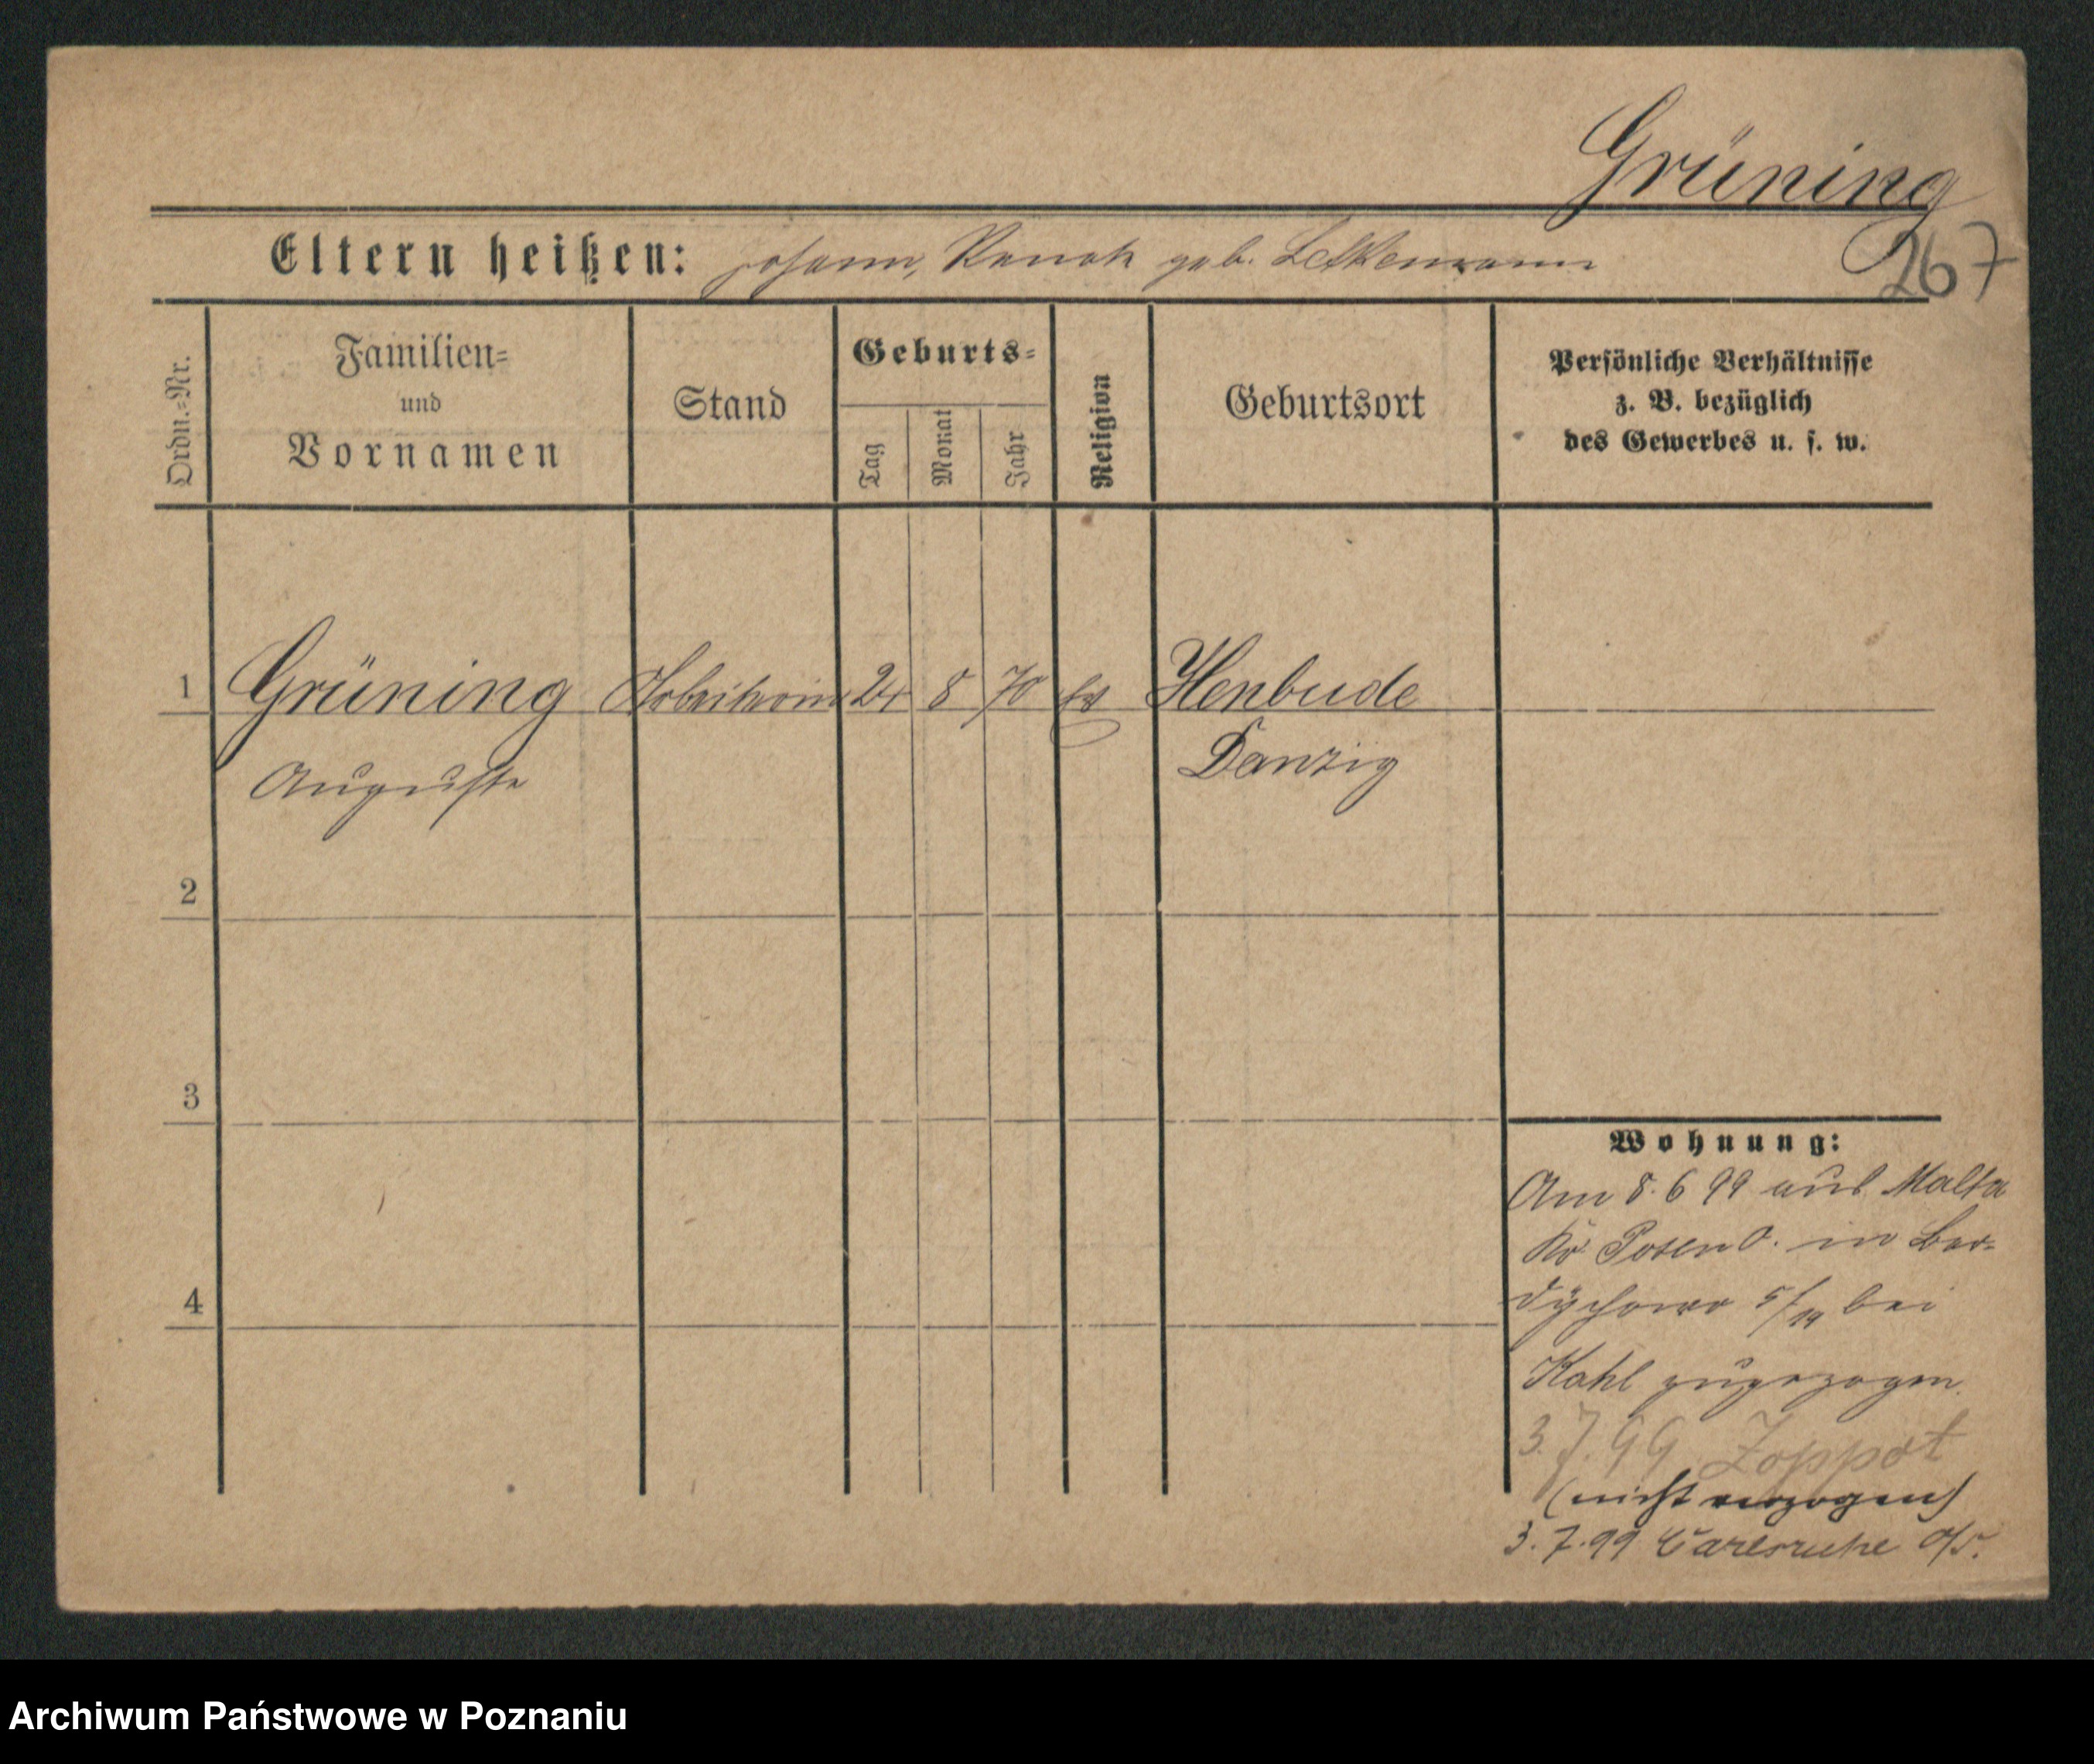 Grüning
267
Eltern heißen: Johann, Renate geb.
Ordn.=Nr.
Familien=
und
Vornamen
Stand
Geburts=
Tag
Monat
Jahr
Religion
Geburtsort
Persönliche Verhältnisse
z. B. bezüglich
des Gewerbes u. s. w.
1 Grüning 8 70 ev Henbude
Auguste Danzig
2
3
4
Wohnung:
Am 8. 6 99 aus Malta
Kr Posen O. in Ber=
dychowo bei
Kahl zugezogen.
3. 7. 99 Zoppot
(nicht verzogen)
3. 7. 99 Carlsruhe
Archiwum Państwowe w Poznaniu